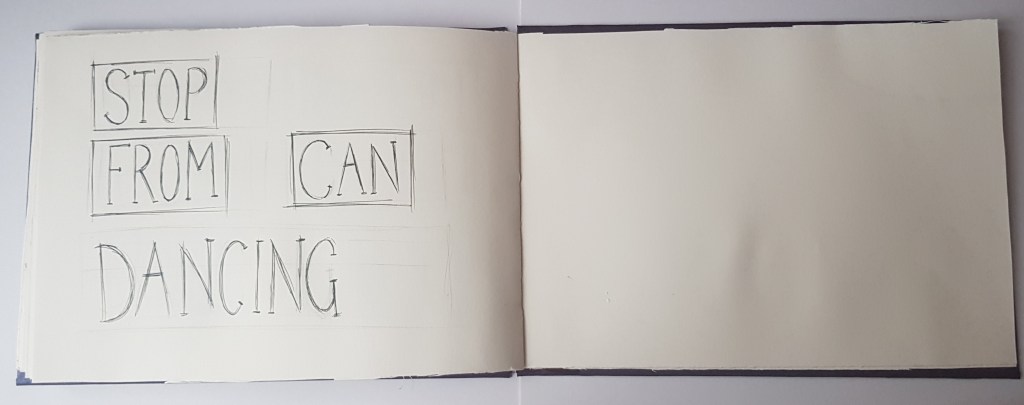 STOP
FROM CAN
DANCING